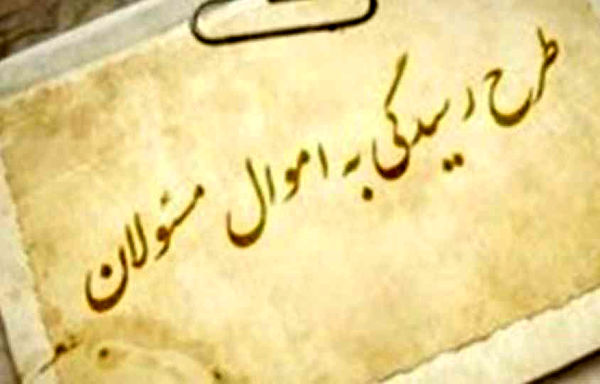 طرح رسیدگی به اموال مسئولان